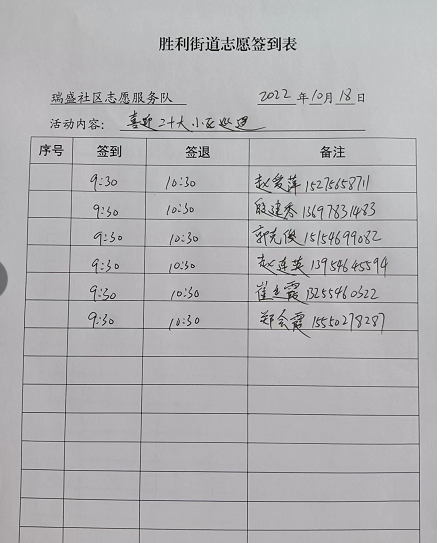 胜利街道志愿签到表
瑞盛社区志愿服务队 2022 年 10 月 18 日
活动内容: 喜迎二十大小区巡逻
序号 签到 签退 备注
9:30 10:30 赵爱萍 15275658711
9:30 10:30 殷建香 13697831483
9:30 10:30 郭克俊 15154699082
9:30 10:30 赵连英 13954645594
9:30 10:30 崔 霞 13255460322
9:30 10:30 郑会霞 15550278287